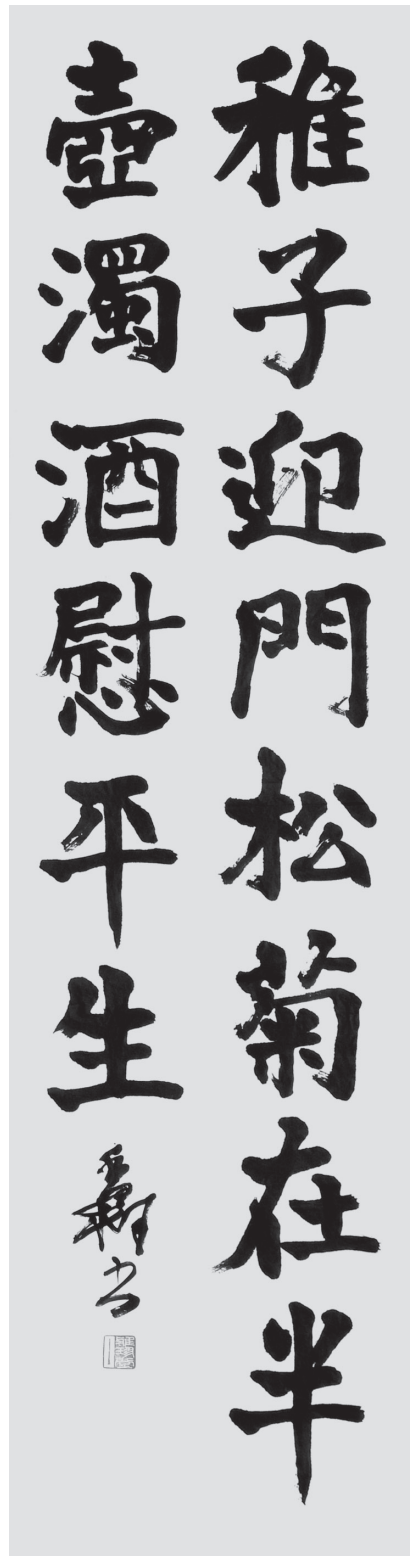 稚子迎門松菊在半
壺濁酒慰平生
書